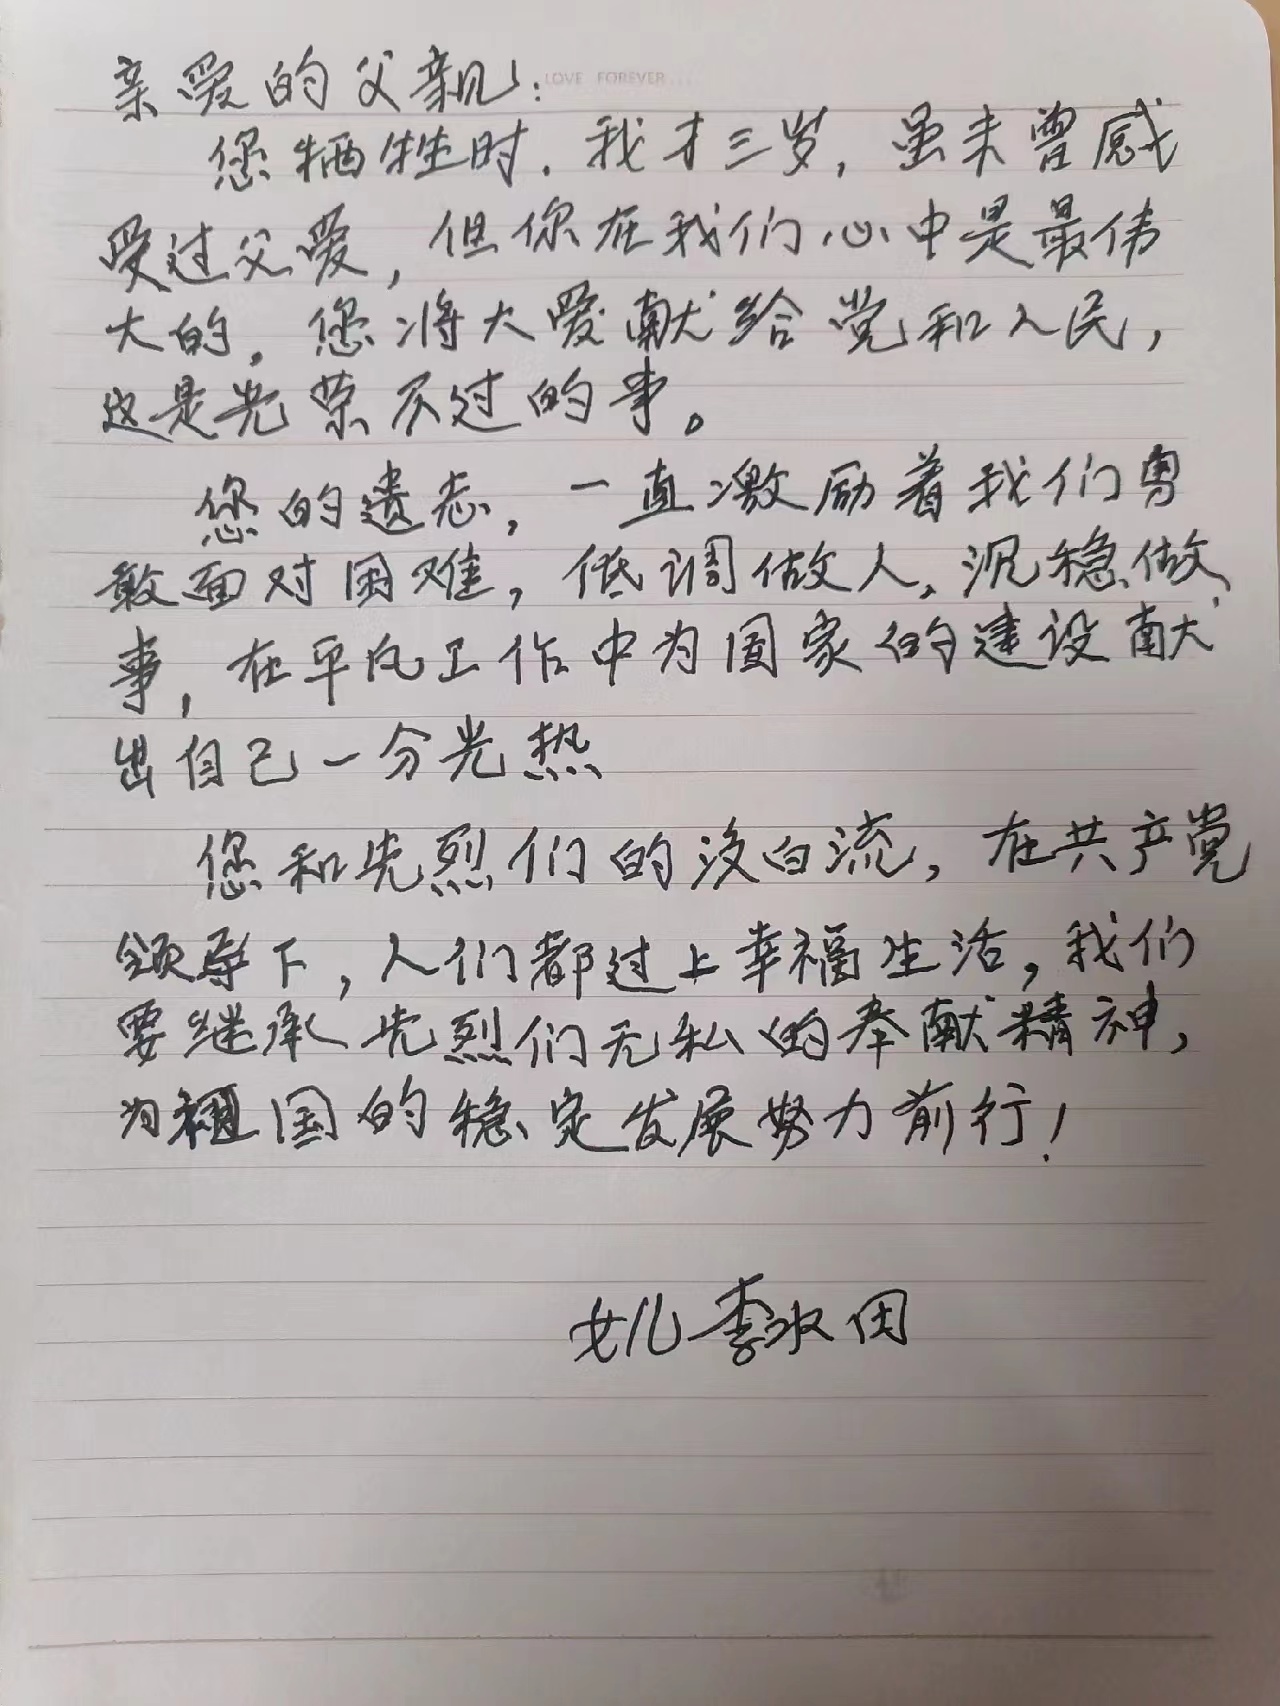 LOVE FOREVER...
亲爱的父亲:
您牺牲时,我才三岁,虽未曾感
受过父爱,但你在我们心中是最伟
大的,您将大爱献给党和人民,
这是光荣不过的事。
您的遗志,一直激励着我们勇
敢面对困难,低调做人、沉稳做
事,在平凡工作中为国家的建设献
出自己一分光热
您和先烈们的没白流,在共产党
领导下,人们都过上幸福生活,我们
要继承先烈们无私的奉献精神,
为祖国的稳定发展努力前行!
女儿李冰田